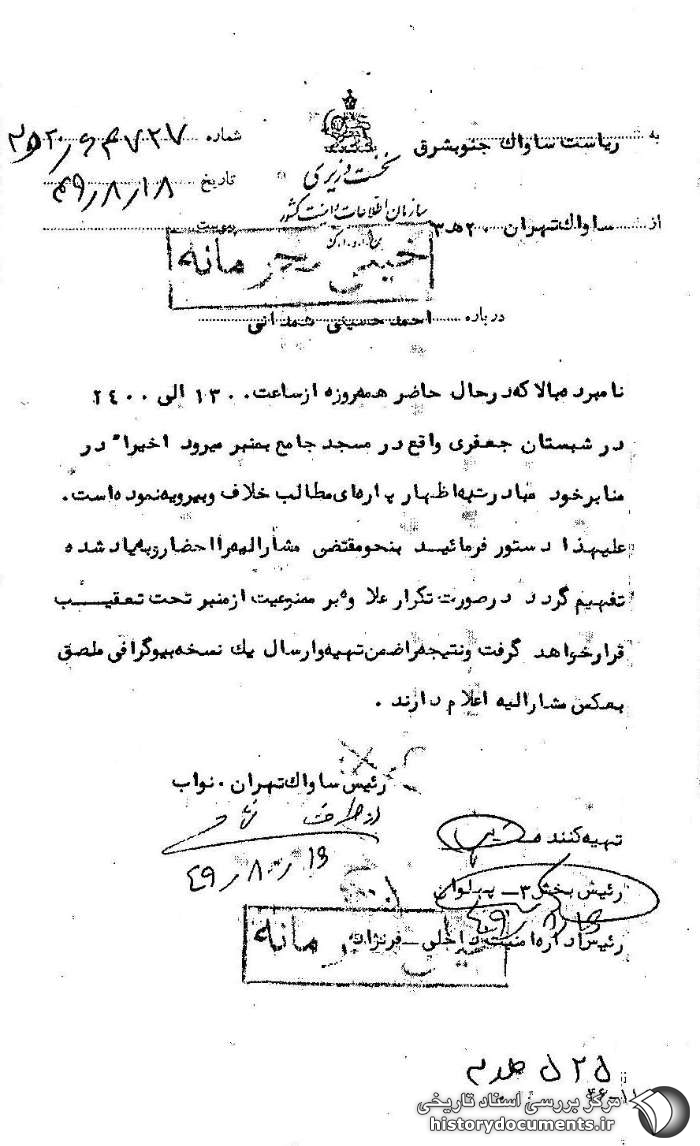 به ریاست ساواک جنوبشرق
شماره
نخست وزیری
تاریخ ۴۹/۸/۱۸
سازمان اطلاعات و امنیت کشور
از ساواک تهران ۲۰ هـ ۳
پیوست
خیلی محرمانه
درباره احمد حسینی همدانی
نامبرده بالا که در حال حاضر همه روزه از ساعت ۱۳۰۰ الی ۲۴۰۰
در شبستان جعفری واقع در مسجد جامع بمنبر میرود اخیراً در
منابر خود مبادرت به اظهار پاره‌ای مطالب خلاف و بیرویه نموده است.
علیهذا دستور فرمائید بنحو مقتضی مشارالیه را احضار و به یاد شده
تفهیم گردد در صورت تکرار علاوه بر ممنوعیت از منبر تحت تعقیب
قرار خواهد گرفت و نتیجه را ضمن تهیه و ارسال یک نسخه بیوگرافی ملصق
بعکس مشارالیه اعلام دارند.
رئیس ساواک تهران. نواب
از طرف
۴۹/۸/۱۶
تهیه کننده
رئیس بخش ۳ـ پهلوان
رئیس اداره امنیت داخلی ـ فرنژاد
خیلی محرمانه
۵۲۵
مرکز بررسی اسناد تاریخی
historydocuments.ir